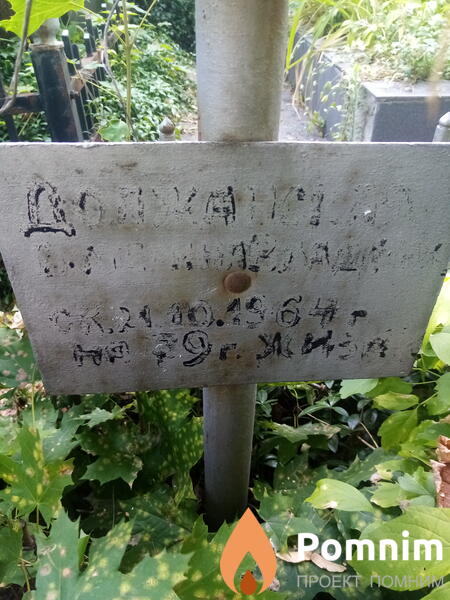 Должанская
ск. 21.10.1964 г
на 79 г. жизн
Pomnim
ПРОЕКТ ПОМНИМ